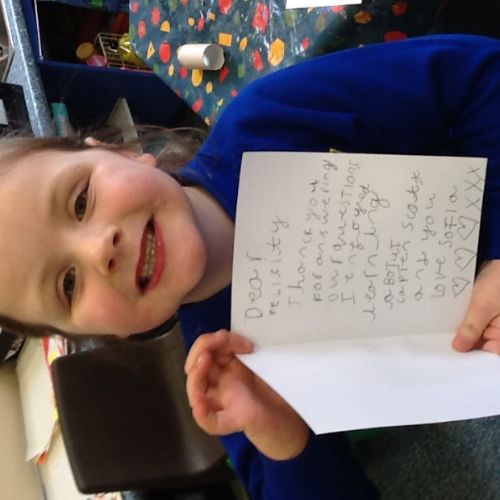 Dear
felisity
Thanck you
For answering
our questions
I enjoyed
learning
aBOut
capten scott
and you
love SOfia
XXX ♡♡♡